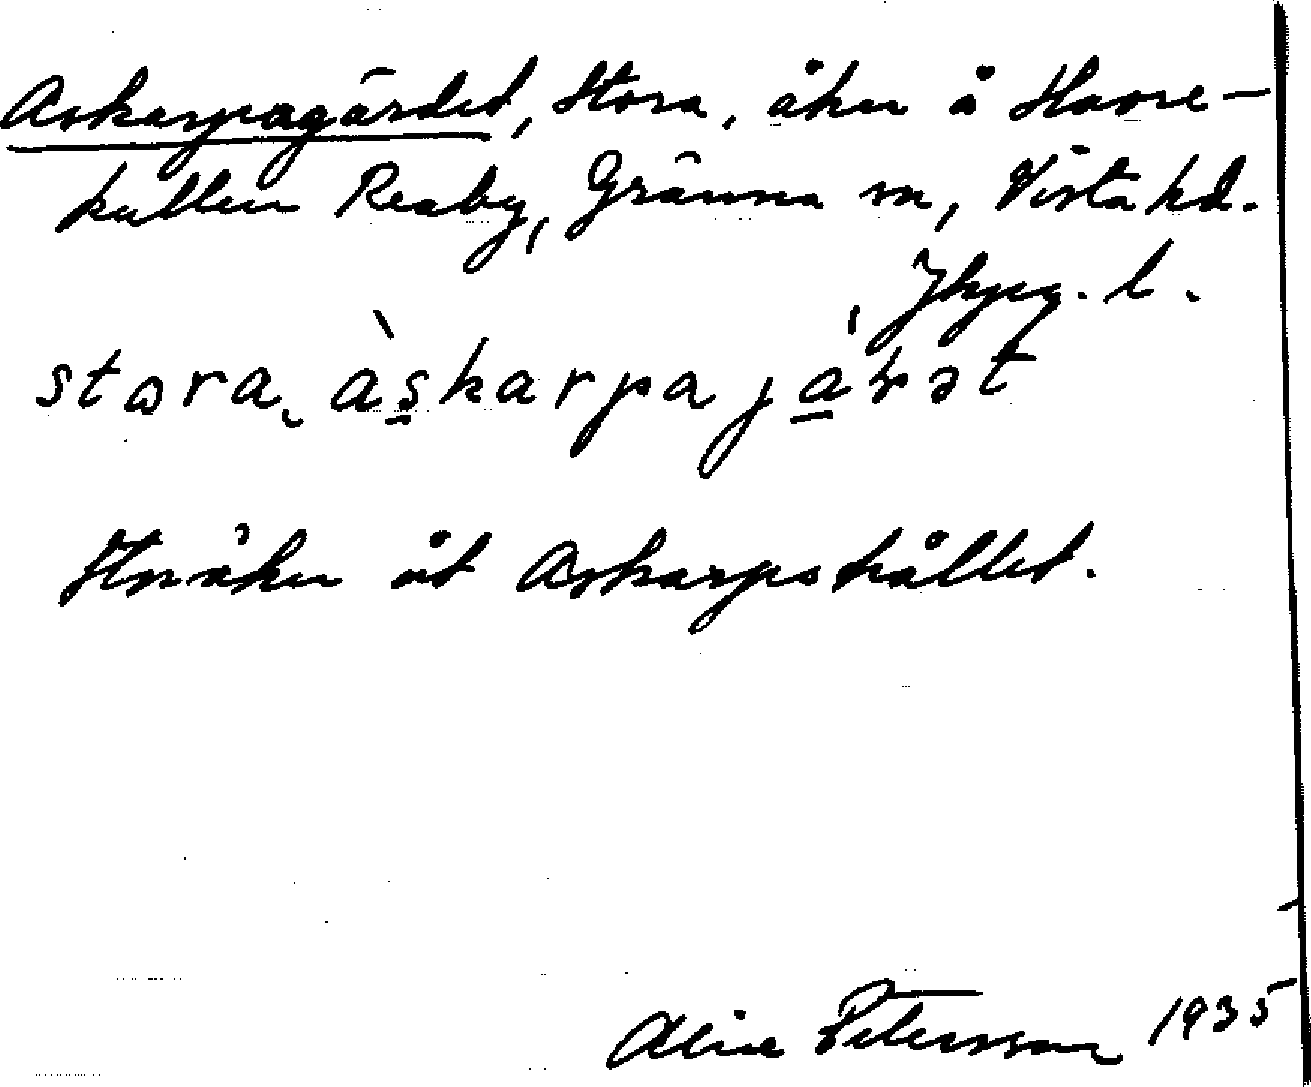 Askarpagärdet, Stora, åker å Havre-
kullen Reaby, Gränna sn, Vista hd.
Jkpg. l.
stora àskarpajárət
Storåker åt Askarpshållet.
Alice Petersson 1935